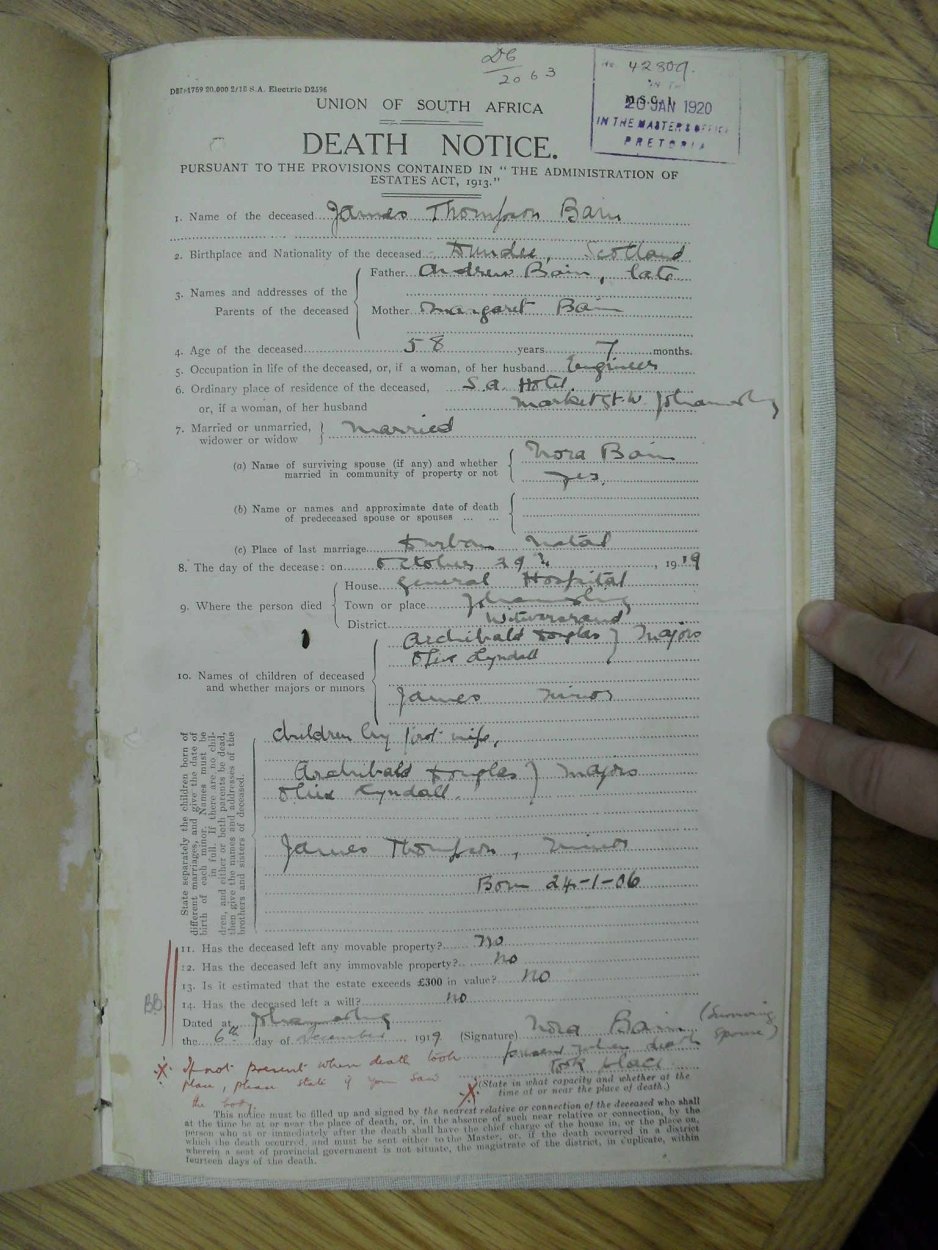 DC
2063
No. 42809.
IN THE
20 JAN 1920
IN THE MASTER'S OFFICE
PRETORIA
DBI:1759 20,000 2/18 S.A. Electric D2596
UNION OF SOUTH AFRICA
DEATH NOTICE.
PURSUANT TO THE PROVISIONS CONTAINED IN "THE ADMINISTRATION OF
ESTATES ACT, 1913."
1. Name of the deceased James Thompson Bain
2. Birthplace and Nationality of the deceased Dundee, Scotland
3. Names and addresses of the
Parents of the deceased
Father Andrew Bain, late
Mother Margaret Bain
4. Age of the deceased 58 years 7 months.
5. Occupation in life of the deceased, or, if a woman, of her husband Engineer
6. Ordinary place of residence of the deceased, S.A. Hotel.
or, if a woman, of her husband Market St. W. Johannesburg
7. Married or unmarried,
widower or widow
Married
(a) Name of surviving spouse (if any) and whether
married in community of property or not
Nora Bain
yes.
(b) Name or names and approximate date of death
of predeceased spouse or spouses ... ...
(c) Place of last marriage Durban Natal
8. The day of the decease: on October 29th, 1919
9. Where the person died
House General Hospital
Town or place Johannesburg
District Witwatersrand
10. Names of children of deceased
and whether majors or minors
Archibald Douglas } Majors
Olive Lyndall
James Minor
State separately the children born of
different marriages, and give the date of
birth of each minor. Names must be
in full. If there are no chil-
dren, and either or both parents be dead,
then give the names and addresses of the
brothers and sisters of deceased.
Children by first wife,
Archibald Douglas } Majors
Olive Lyndall.
James Thompson, Minor
Born 24-1-06
11. Has the deceased left any movable property? No
12. Has the deceased left any immovable property? No
13. Is it estimated that the estate exceeds £300 in value? No
14. Has the deceased left a will? No
BB
Dated at Johannesburg
the 6th day of December 1919 (Signature) Nora Bain (Surviving
Spouse)
present when death
took place
X. If not present when death took
place, please state if you saw
the body.
X (State in what capacity and whether at the
time at or near the place of death.)
This notice must be filled up and signed by the nearest relative or connection of the deceased who shall
at the time be at or near the place of death, or, in the absence of such near relative or connection, by the
person who at or immediately after the death shall have the chief charge of the house in, or the place on,
which the death occurred, and must be sent either to the Master, or, if the death occurred in a district
wherein a seat of provincial government is not situate, the magistrate of the district, in duplicate, within
fourteen days of the death.